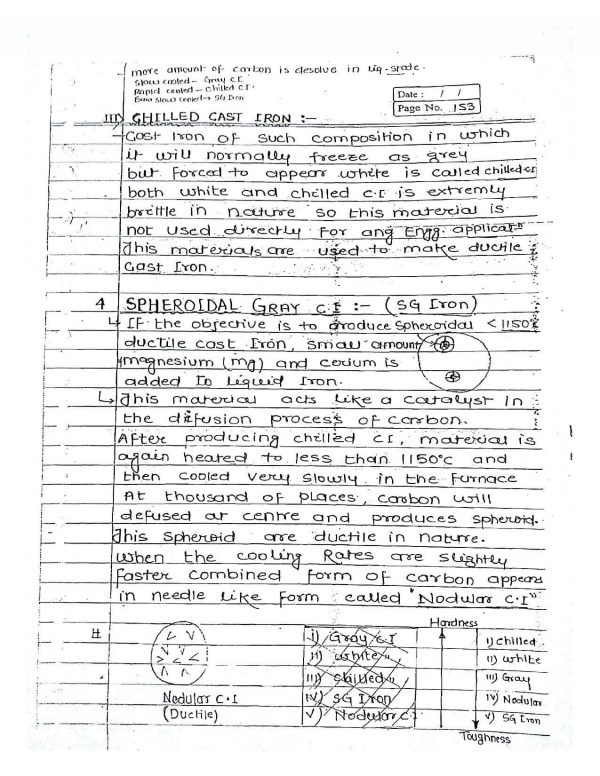 more amount of carbon is desolve in liq. state.
Slow cooled - Gray C.I
Rapid cooled - Chilled C.I.
Date : / /
Page No. 153
III) CHILLED CAST IRON :-
Cast Iron of such composition in which
it will normally freeze as grey
but forced to appear white is called chilled CI
both white and chilled C.I is extremly
brittle in nature so this material is
not used directly for any Engg. applicatn
This materials are used to make ductile
Cast Iron.
4 SPHEROIDAL GRAY C.I :- (SG Iron)
↳ If the objective is to produce spheroidal <1150°c
ductile cast Iron, small amount
magnesium (mg) and cerium is
added to liquid Iron.
↳ This material acts like a catalyst in
the difusion process of carbon.
After producing chilled CI, material is
again heated to less than 1150°c and
then cooled very slowly in the furnace
At thousand of places, carbon will
defused at centre and produces spheroid.
This spheroid are ductile in nature.
when the cooling Rates are slightly
faster combined form of carbon appears
in needle like form called "Nodular C.I"
Hardness
i) Gray C.I
ii) white "
iii) chilled "
iv) SG Iron
v) Nodular C.I
i) chilled
ii) white
iii) Gray
iv) Nodular
v) SG Iron
Nodular C.I
(Ductile)
Toughness